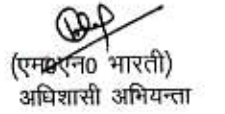 (एम0एन0 भारती)
अधिशासी अभियन्ता